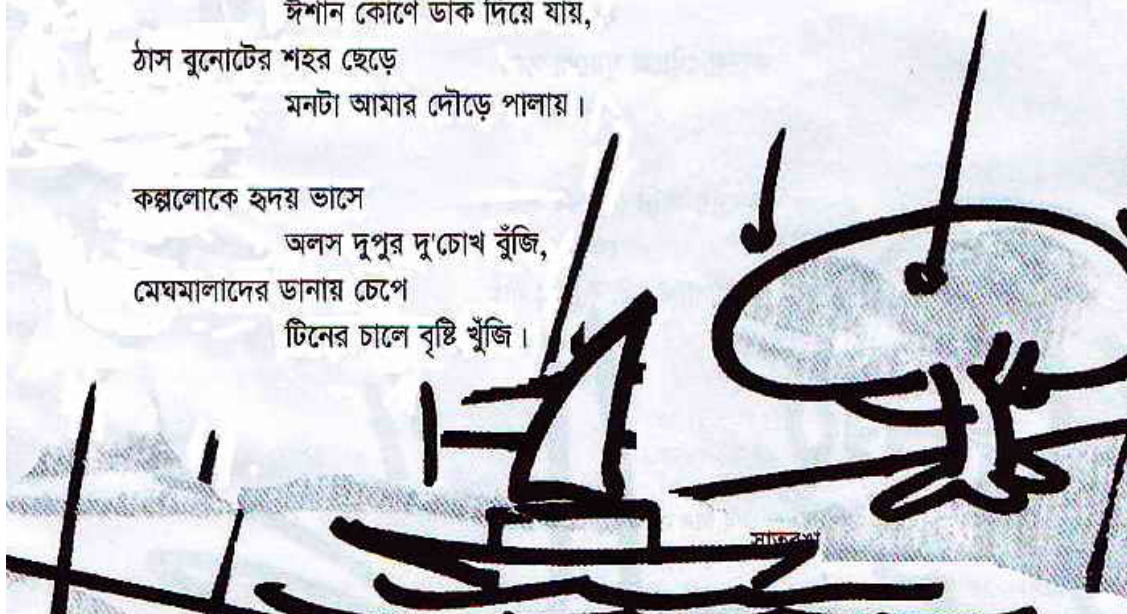 ঈশান কোণে ডাক দিয়ে যায়,
ঠাস বুনোটের শহর ছেড়ে
মনটা আমার দৌড়ে পালায়।
কল্পলোকে হৃদয় ভাসে
অলস দুপুর দু'চোখ বুঁজি,
মেঘমালাদের ডানায় চেপে
টিনের চালে বৃষ্টি খুঁজি।